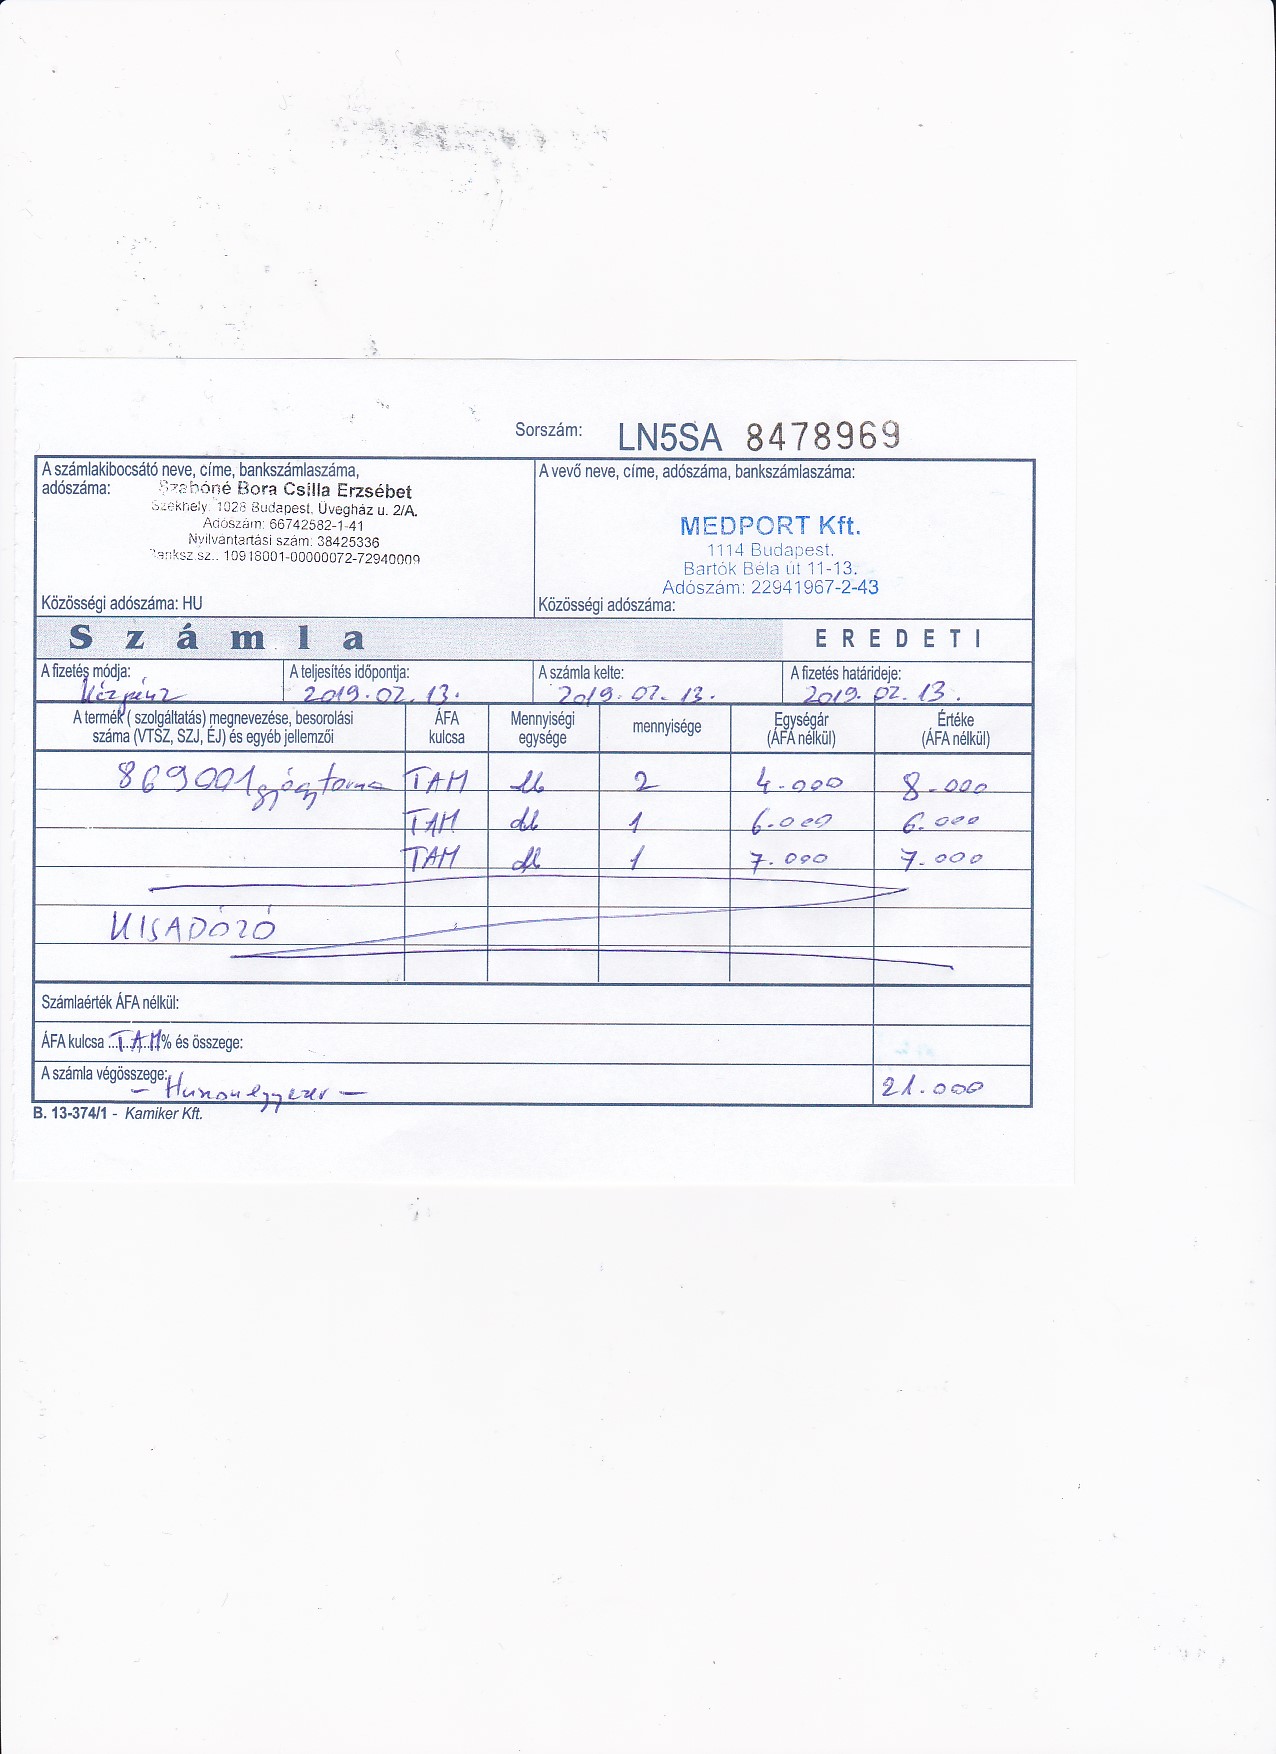 Sorszám: LN5SA 8478969
A számlakibocsátó neve, címe, bankszámlaszáma,
adószáma:
Szabóné Bora Csilla Erzsébet
Székhely: 1028 Budapest, Üvegház u. 2/A.
Adószám: 66742582-1-41
Nyilvántartási szám: 38425336
Banksz.sz.: 10918001-00000072-72940009
Közösségi adószáma: HU
A vevő neve, címe, adószáma, bankszámlaszáma:
MEDPORT Kft.
1114 Budapest,
Bartók Béla út 11-13.
Adószám: 22941967-2-43
Közösségi adószáma:
Számla EREDETI
A fizetés módja: Készpénz
A teljesítés időpontja: 2019.02.13.
A számla kelte: 2019.02.13.
A fizetés határideje: 2019.02.13.
A termék ( szolgáltatás) megnevezése, besorolási
száma (VTSZ, SZJ, ÉJ) és egyéb jellemzői
ÁFA
kulcsa
Mennyiségi
egysége
mennyisége
Egységár
(ÁFA nélkül)
Értéke
(ÁFA nélkül)
869001 gyógytorna TAM 2 4.000 8.000
TAM db 1 6.000 6.000
TAM db 1 7.000 7.000
KISADÓZÓ
Számlaérték ÁFA nélkül:
ÁFA kulcsa TAM % és összege:
A számla végösszege: - Huszonegyezer - 21.000
B. 13-374/1 - Kamiker Kft.